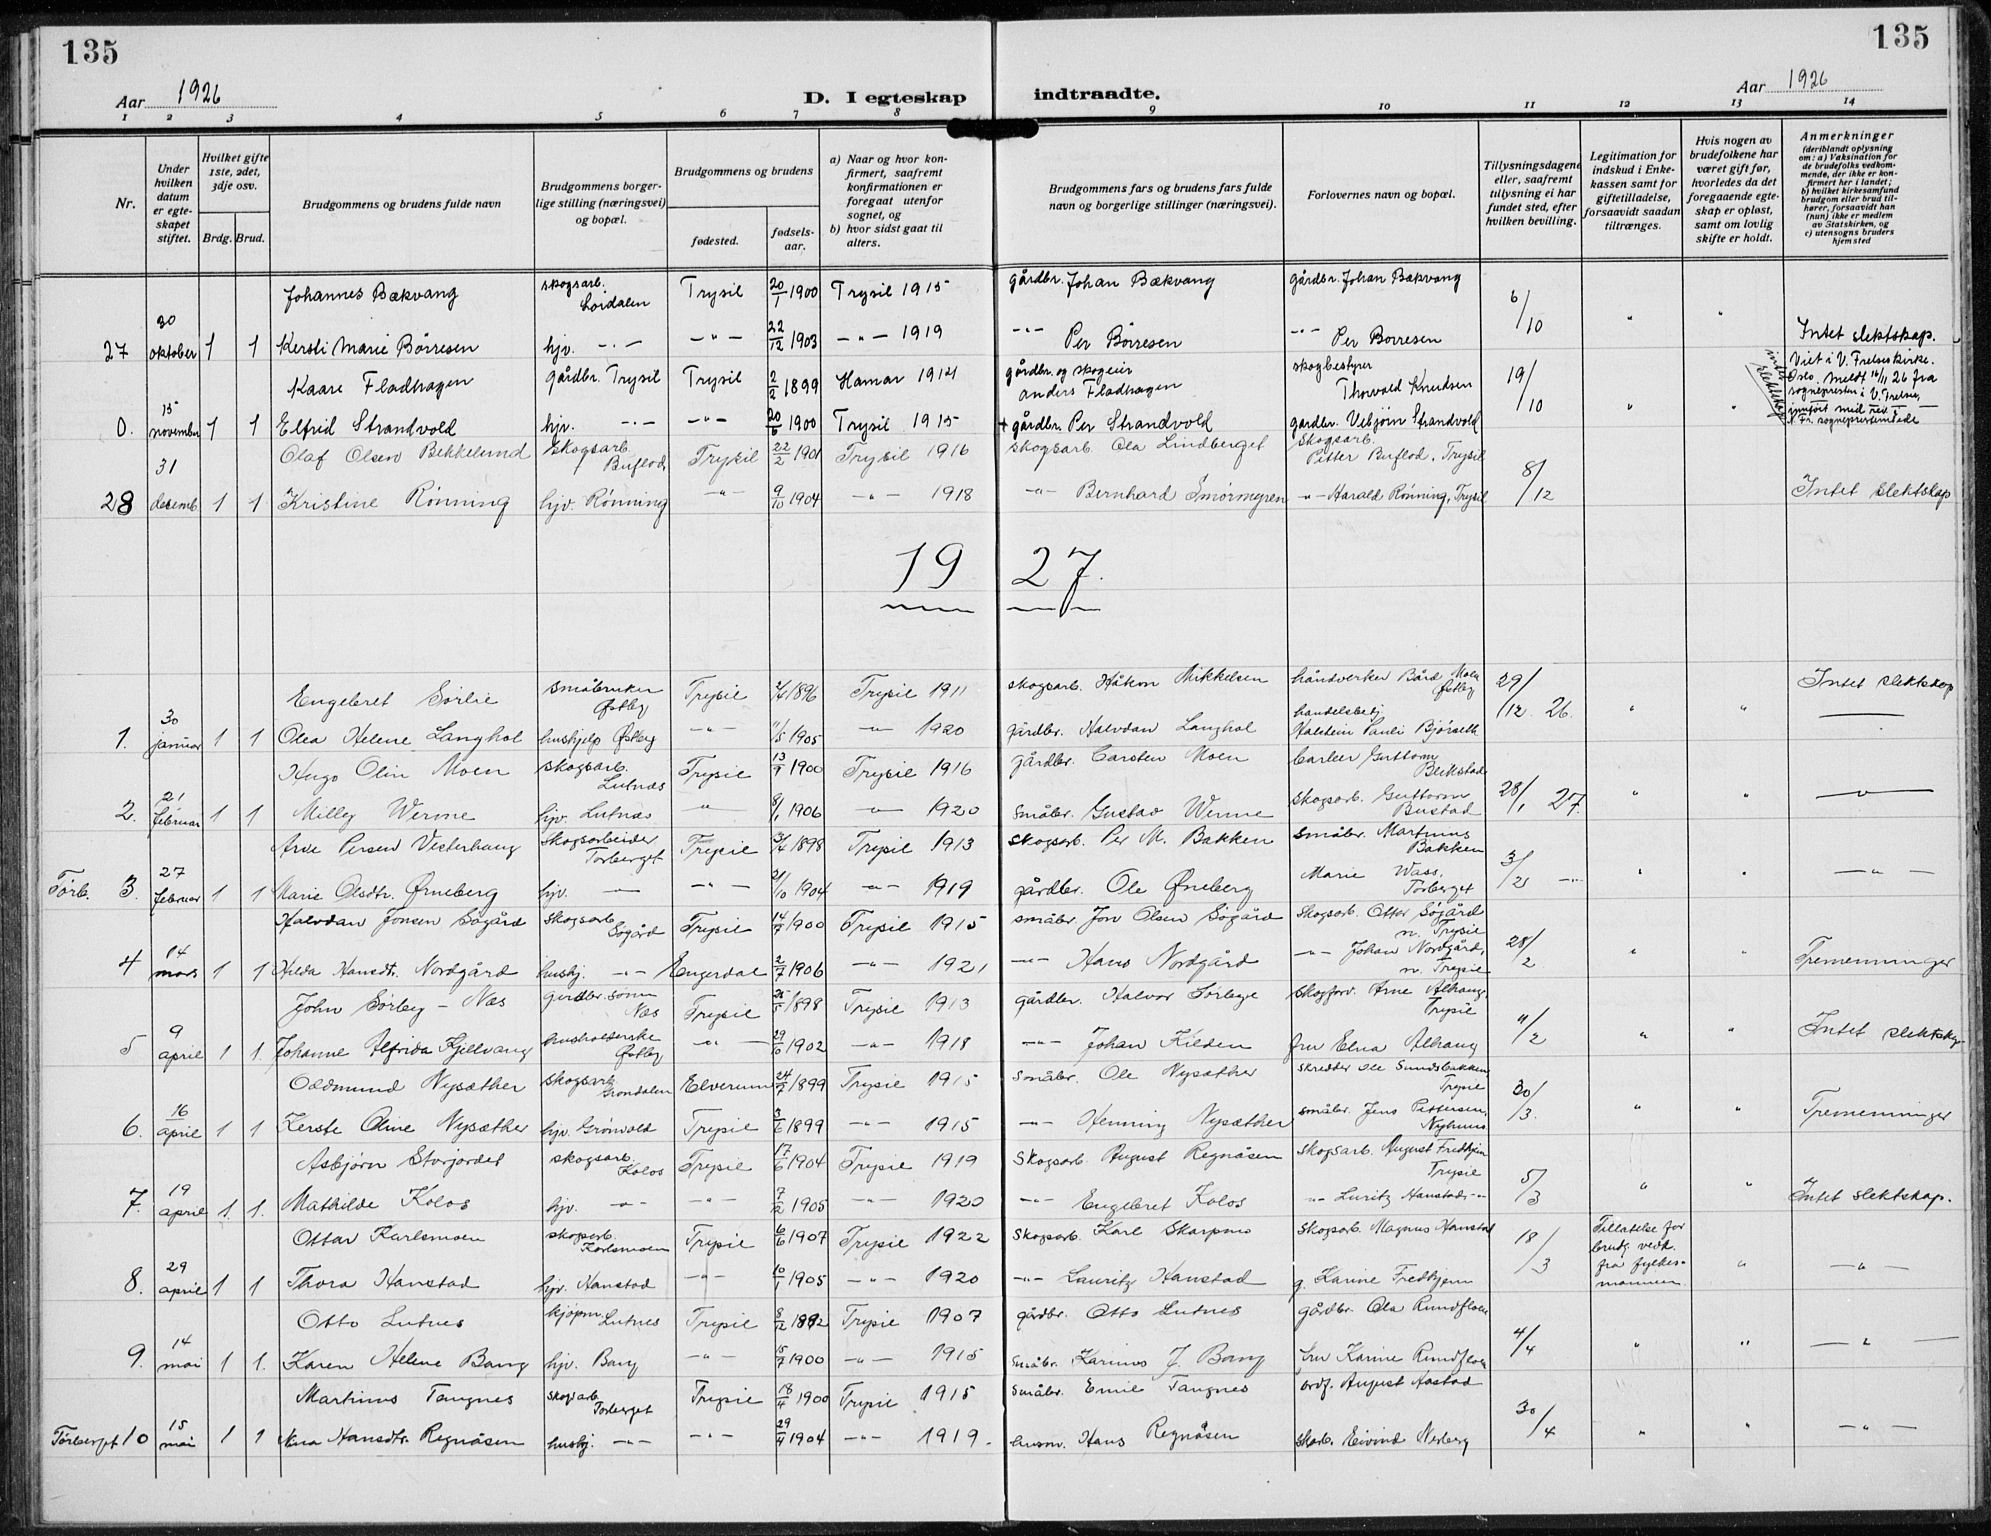 135
135
Aar 1926
D. I egteskap indtraadte.
Aar 1926
1 2 3 4 5 6 7 8 9 10 11 12 13 14
Nr.
Under hvilken datum er egteskapet stiftet.
Hvilket gifte 1ste, 2det, 3dje osv.
Brdg. Brud.
Brudgommens og brudens fulde navn
Brudgommens borgerlige stilling (næringsvei) og bopæl.
Brudgommens og brudens
fødested. fødselsaar.
a) Naar og hvor konfirmert, saafremt konfirmationen er foregaat utenfor sognet, og
b) hvor sidst gaat til alters.
Brudgommens fars og brudens fars fulde navn og borgerlige stillinger (næringsvei).
Forlovernes navn og bopæl.
Tillysningsdagene eller, saafremt tillysning ei har fundet sted, efter hvilken bevilling.
Legitimation for indskud i Enkekassen samt for giftetilladelse, forsaavidt saadan tiltrænges.
Hvis nogen av brudefolkene har været gift før, hvorledes da det foregaaende egteskap er opløst, samt om lovlig skifte er holdt.
Anmerkninger
(deriblandt oplysning om: a) Vaksination for de brudefolks vedkommende, der ikke er konfirmert her i landet; b) hvilket kirkesamfund brudgom eller brud tilhører, forsaavidt han (hun) ikke er medlem av Statskirken, og c) utensogns bruders hjemsted
Johannes Bækvang skogsarb. Loidalen Trysil 20/1 1900 Trysil 1915 gårdbr. Johan Bækvang gårdbr. Johan Bækvang 6/10 " "
27 30 oktober 1 1 Kersti Marie Börresen hjv. -"- -"- 22/12 1903 -"- 1919 -"- Per Börresen -"- Per Borresen Intet slektskap.
Kaare Fladhagen gårdbr. Trysil Trysil 2/2 1899 Hamar 1914 gårdbr. og skogeier Anders Fladhagen skogbestyrer Thorvald Knudsen 19/10 " " intet slektskap Viet i V. Frelsers kirke. Oslo. Meldt 16/11 26 fra sogneprester i V. Frelser,
0. 15 november 1 1 Elfrid Strandvold hjv. -"- -"- 20/6 1900 Trysil 1915 + gårdbr. Per Strandvold gårdbr. Vebjörn Strandvold
Olaf Olsen Bekkelund skogsarb. Buflod Trysil 22/2 1901 Trysil 1916 skogsarb. Ola Lindberget skogsarb. Petter Buflod, Trysil 8/12
28 31 desemb 1 1 Kristine Rönning hjv. Rönning -"- 9/10 1904 -"- 1918 -"- Bernhard Smörmyren -"- Harald Rönning, Trysil Intet slektskap
19 27.
Engebret Sörlie småbruker Östby Trysil 1896 Trysil 1911 skogsarb. Håkon Mikkelsen håndverker Bård Moen Östby 29/12. 26. " " Intet slektskap
1. 30 januar 1 1 Olea Helene Langhol hushjelp Östby -"- 11/5 1905 -"- 1920 gårdbr. Halvdan Langhol handelsbetj. Halstein Pauli Björseth
Hugo Olin Moen skogsarb. Lutnæs Trysil 13/9 1900 Trysil 1916 gårdbr. Carsten Moen Guttorm Blikstad 28/1 27. " " -"-
2. 21 februar 1 1 Milly Werme hjv. Lutnæs " 8/1 1906 -"- 1920 småbr. Gustav Werme skogsarb. Guttorm Bustad
Arve Persen Vesterhaug skogsarbeider Torberget Trysil 3/4 1898 Trysil 1913 skogsarb. Per M. Bakken småbr. Martinus Bakken 3/2 -"- " " -"-
Törb. 3. 27 februar 1 1 Marie Olsdtr. Örneberg hjv. -"- -"- 21/10 1904 -"- 1919 gårdbr. Ole Öneberg Marie Wass, Torberget
Halvdan Jonsen Sögård skogsarb. Sögård Trysil 14/7 1900 Trysil 1915 småbr. Jon Olsen Sögård skogsarb. Ottar Sögård n. Trysil 28/2 " "
4 14 mars 1 1 Hilda Hansdtr. Nordgård hushj. -"- Engerdal 2/7 1906 -"- 1921 -"- Hans Nordgård -"- Johan Nordgård, n. Trysil Tremenninger
John Sörby - Næs gårdbr. sönn Næs Trysil 25/5 1898 Trysil 1913 gårdbr. Halvor Sörbye skogforv. Arne Alhaug, Trysil
5 9 april 1 1. Johanne Alfrida Kjellvang husholderske Östby -"- 29/10 1902 -"- 1918 -"- Johan Kilden fru Elna Alhaug 11/2 " " Intet slektskap
Oddmund Nysæther skogsarb. Gröndalen Elverum 24/7 1899 Trysil 1915 småbr. Ole Nysæther skredder Ole Sundsbakken, Trysil 30/3. " "
6. 16 april 1 1 Kersti Oline Nysæther hjv. Grönvold Trysil 3/6 1899 -"- 1915 -"- Henning Nysæther småbr. Jens Pettersen, Nyhuus Tremenninger
Asbjörn Storjordet skogsarb. Kolos Trysil 17/6 1904 Trysil 1919 skogsarb. August Regnåsen skogsarb. August Fredhjem Trysil 5/3 " "
7. 19 april 1. 1. Mathilde Kolos hjv. -"- -"- 7/2 1905 -"- 1920 -"- Engebret Kolos -"- Luritz Hanstad -"- Intet slektskap.
Ottar Karlsmoen skogsarb. Karlsmoen Trysil 6/6 1907 Trysil 1922 skogsarb. Karl Skarpmo skogsarb. Magnus Hanstad 18/3 Tillatelse for brudg. vedk. fra fylkesmannen. " -"-
8. 29 april 1 1 Thora Hanstad hjv. Hanstad -"- 10/1 1905 -"- 1920 -"- Lauritz Hanstad g. Karine Fredhjem
Otto Lutnes kjöpm. Lutnes Trysil 8/2 1892 Trysil 1907 gårdbr. Otto Lutnes gårdbr. Ola Rundfloen 4/4 " " -"-
9. 14 mai 1 1. Karen Helene Bang hjv. Bang -"- 15/7 1900 -"- 1915 småbr. Karinus J. Bang fru Karine Rundfloen
Martinus Tangnes skogsarb. Torberget Trysil 18/4 1900 Trysil 1915 småbr. Emil Tangnes ordf. August Aastad 30/4 " " -"-
Törberget 10 15 mai 1 1 Hansdtr. Regnåsen hushj. -"- -"- 29/4 1904 -"- 1919. husm. Hans Regnåsen Eivind Nerberg